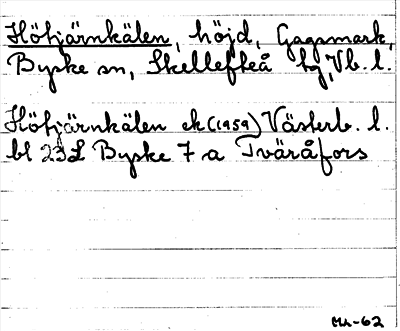 Hötjärnkälen, höjd, Gagsmark,
Byske sn, Skellefteå tg, Vb. l.
Hötjärnkälen ek (1959) Västerb. l.
bl 23L Byske 7a Tväråfors
-62